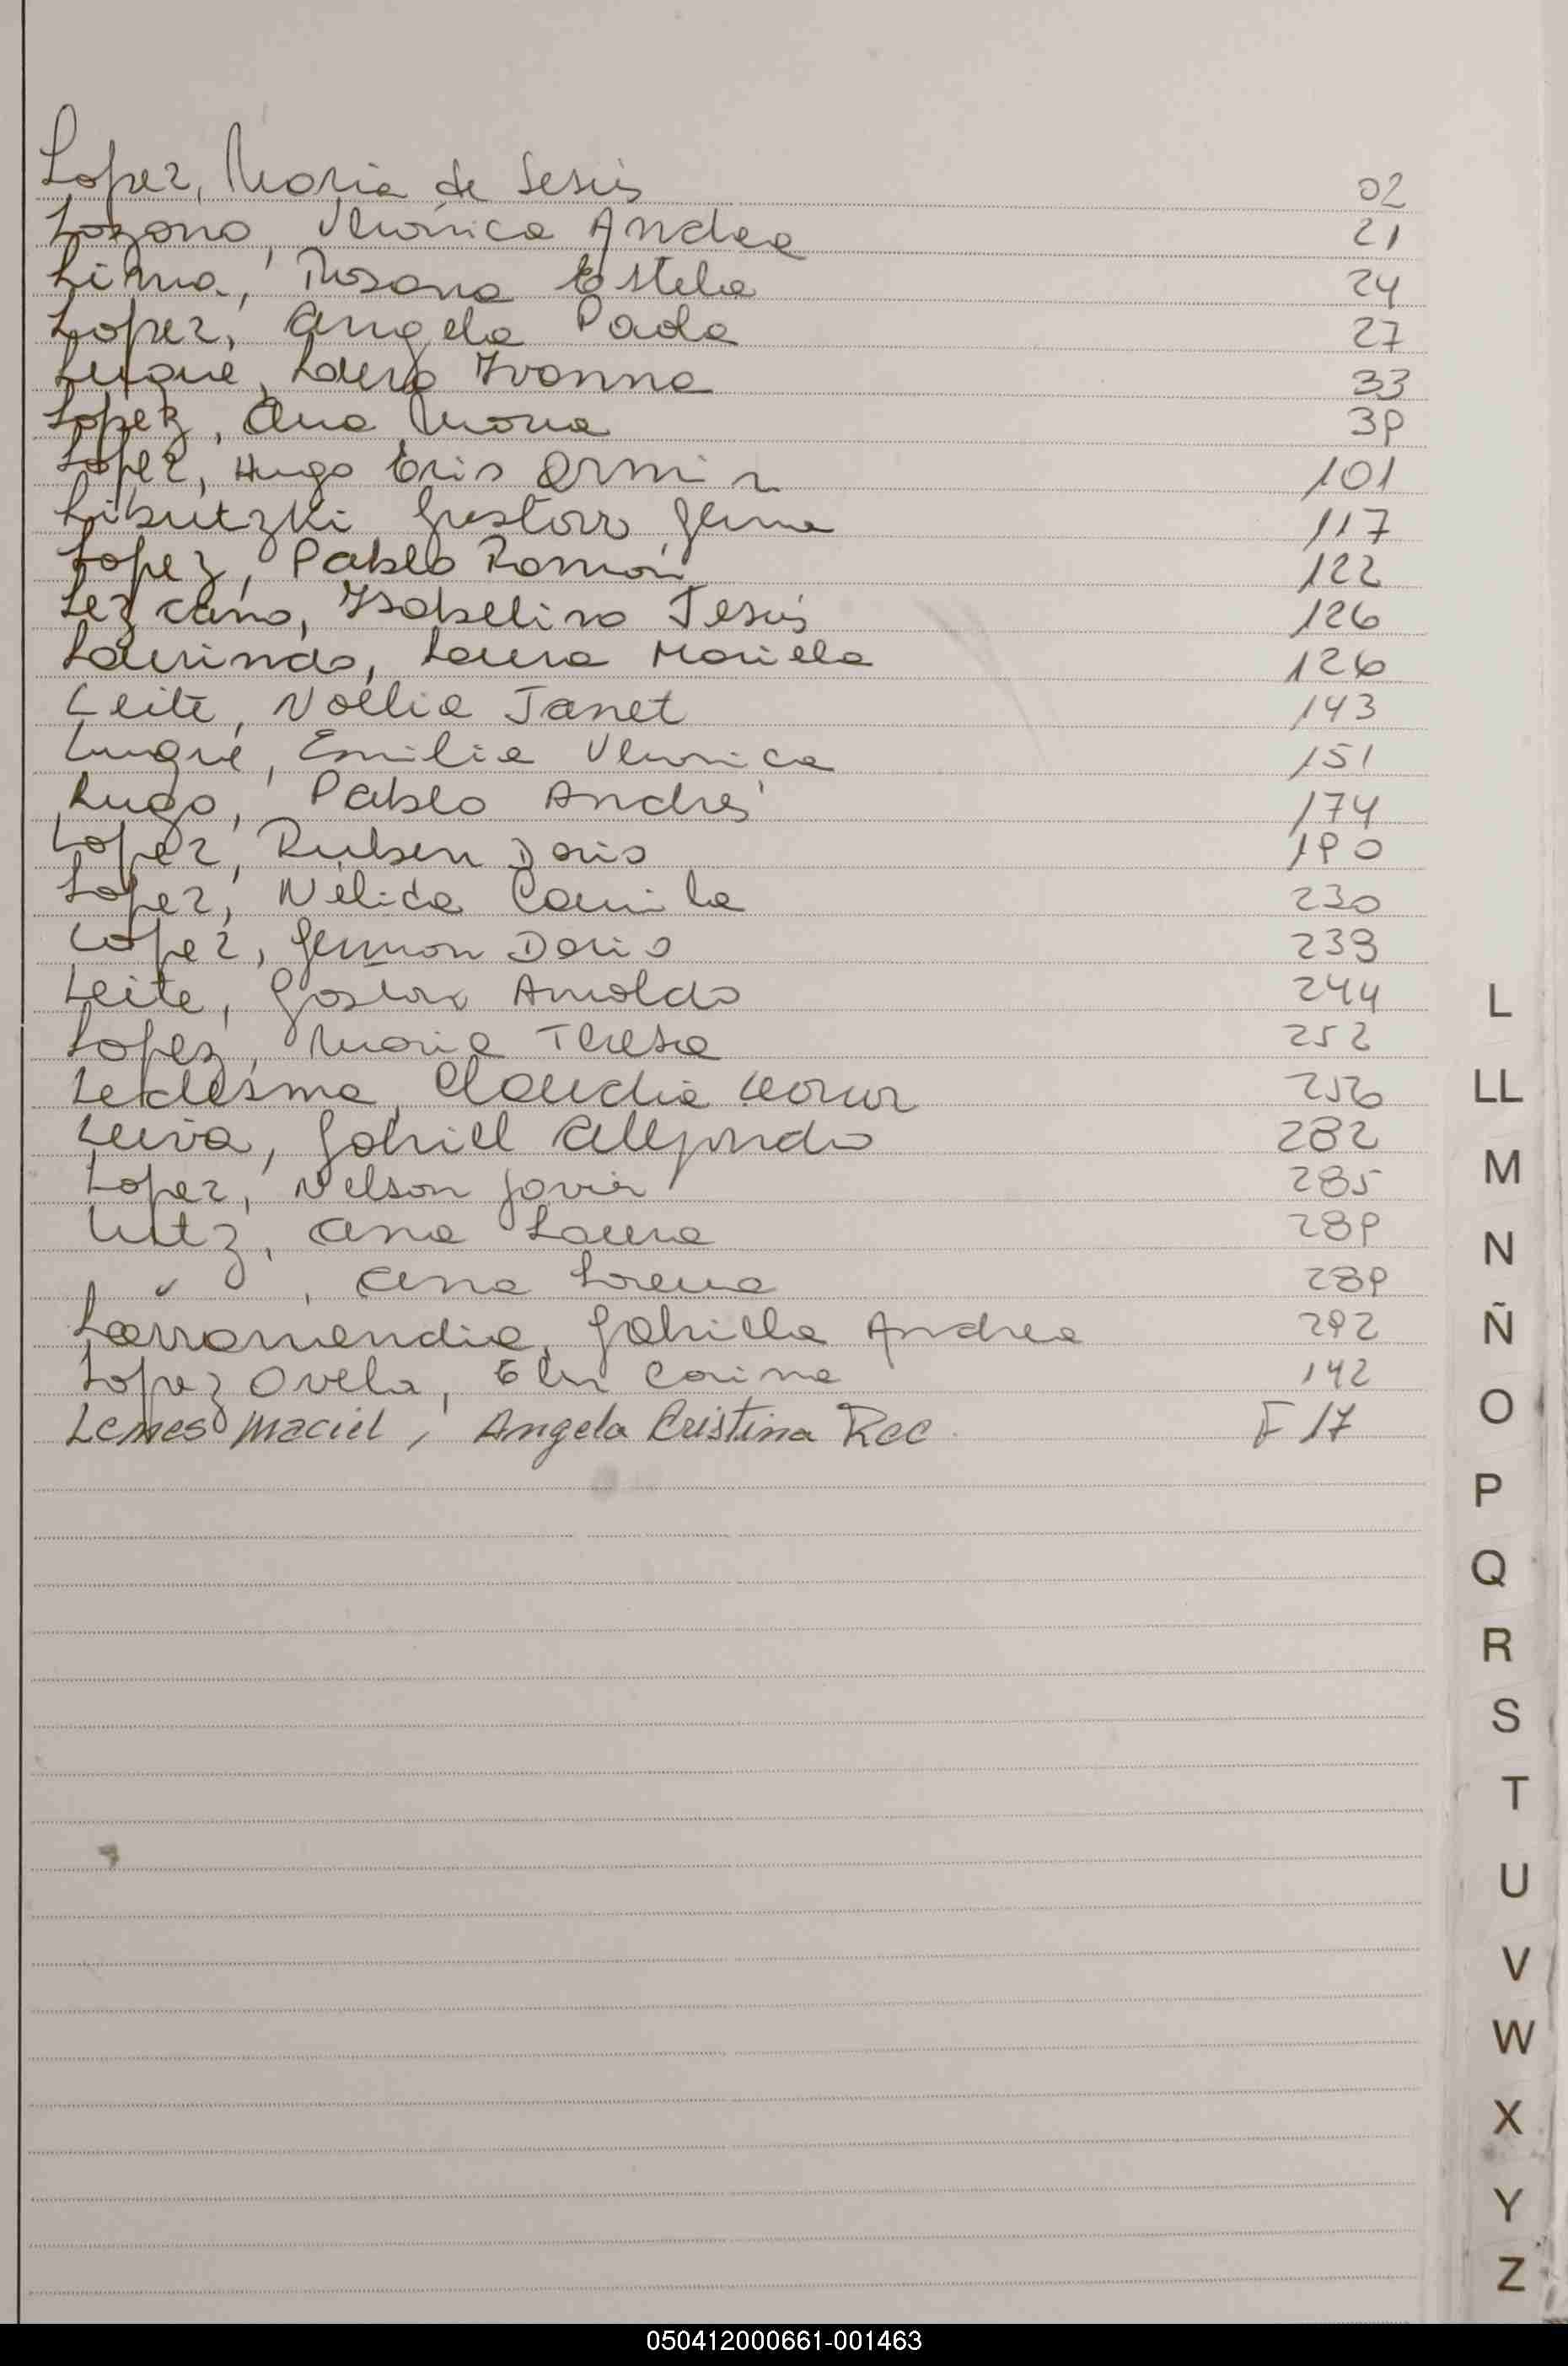 Lopez, Maria de Jesús 02
Lozano, Verónica Andrea 21
Lima, Rosana Estela 24
Lopez, Angela Paola 27
Luque, Laura Ivonna 33
Lopez, Ana Maria 39
Lopez, Hugo Eris Armin 101
Libutzki Gustavo Germa 117
Lopez, Pablo Ramón 122
Lezcano, Isabelino Jesús 126
Laurindo, Laura Mariela 126
Leite, Noelia Janet 143
Luque, Emilia Veronica 151
Lugo, Pablo Andrés 174
Lopez, Ruben Dario 190
Lopez, Nélida Camila 230
Lopez, German Dario 239
Leite, Gastón Arnoldo 244
Lopez, Maria Teresa 252
Ledesma, Claudia Leonor 256
Leiva, Gabriel Alejandro 282
Lopez, Nelson Javier 285
Lutz, Ana Laura 289
" , Ana Lorena 289
Larramendia, Gabriela Andrea 292
Lopez Ovela, Eler Carina 142
Lemes Maciel, Angela Cristina Rec F 17
L
LL
M
N
Ñ
O
P
Q
R
S
T
U
V
W
X
Y
Z
050412000661-001463